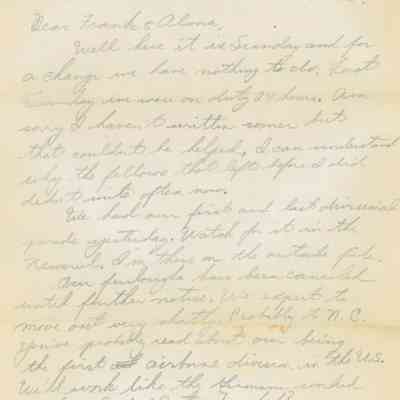 Dear Frank & Alma,
Well here it is Sunday and for
a change we have nothing to do. Last
Sunday we were on duty 24 hours. Am
sorry I haven't written sooner but
that couldn't be helped, I can understand
why the fellows that left before I did
didn't write often now.
We had our first and last divisional
parade yesterday. Watch for it in the
newsreel. I'm there on the outside file.
Our furloughs have been canceled
until further notice. We expect to
move out very shortly. Probably to N.C.
You've probably read about our being
the first airborne division in the U.S.
We'll work like the